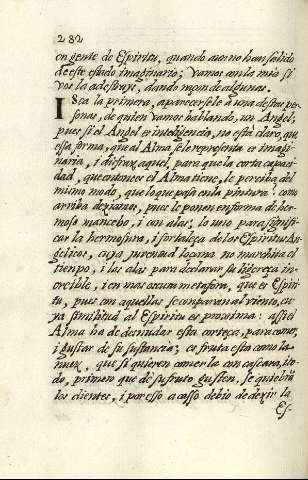 232
en gente de Espiritu, quando aun no han salido
de este estado imaginario; vamos con la mia si
vos la adestrais, dando razon de algunas.
Sea la primera, aparecersele à una destas per
sonas, de quien vamos hablando, un Angel,
pues si el Angel es inteligencia, no està claro, que
essa forma, que al Alma se le representa es imagi
naria, i disfraz aquel, para que la corta capaci
dad, que entonces el Alma tiene, le perciba del
mismo modo, que lo que passa en la pintura: como
arriba deziamos, pues le ponen en forma de her
moso mancebo, i con alas, lo uno para signifi
car la hermosura, i fortaleza de los Espiritus An
gelicos, cuya juventud loçana no marchita el
tiempo, i las alas para declarar su ligereza in
creible, i en mas oscura metafora, que es Espiri
tu, pues con aquellas se comparan al viento, cu
ya similitud al Espiritu es proxima: assi el
Alma ha de desnudar esta corteza, para comer,
i gustar de su sustancia; es fruta esta como la
nuez, que si quieren comerla con cascara, i to
do, primero que de su fruto gusten, se quiebran
los dientes, i por esso acasso debio de dezir la
Es-